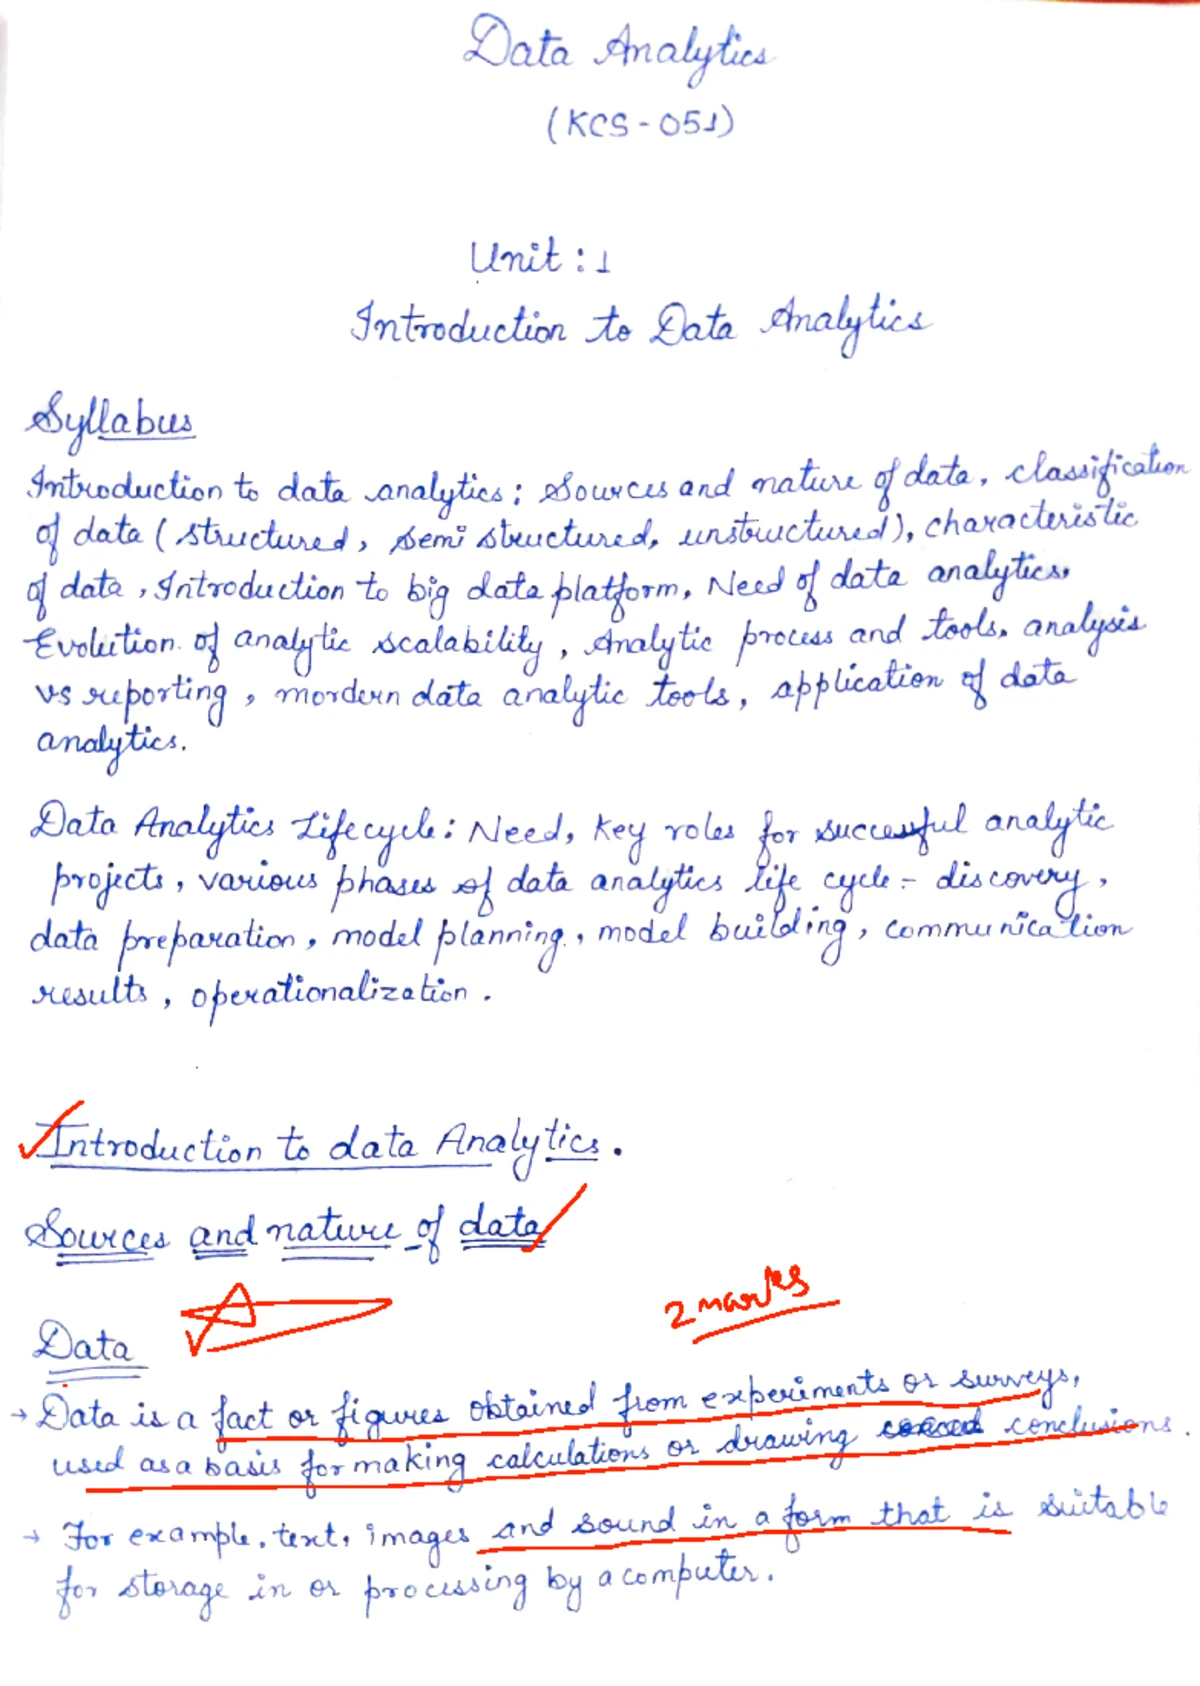 Data Analytics
(KCS-051)
Unit : 1
Introduction to Data Analytics
Syllabus
Introduction to data analytics : Sources and nature of data, classification
of data (structured, semi structured, unstructured), characteristic
of data, Introduction to big data platform, Need of data analytics,
Evolution of analytic scalability, Analytic process and tools, analysis
vs reporting, mordern data analytic tools, application of data
analytics.
Data Analytics Lifecycle : Need, Key roles for successful analytic
projects, various phases of data analytics life cycle - discovery,
data preparation, model planning, model building, communication
results, operationalization.
Introduction to data Analytics.
Sources and nature of data
2 marks
Data
→ Data is a fact or figures obtained from experiments or surveys,
used as a basis for making calculations or drawing conclusions.
→ For example, text, images and sound in a form that is suitable
for storage in or processing by a computer.